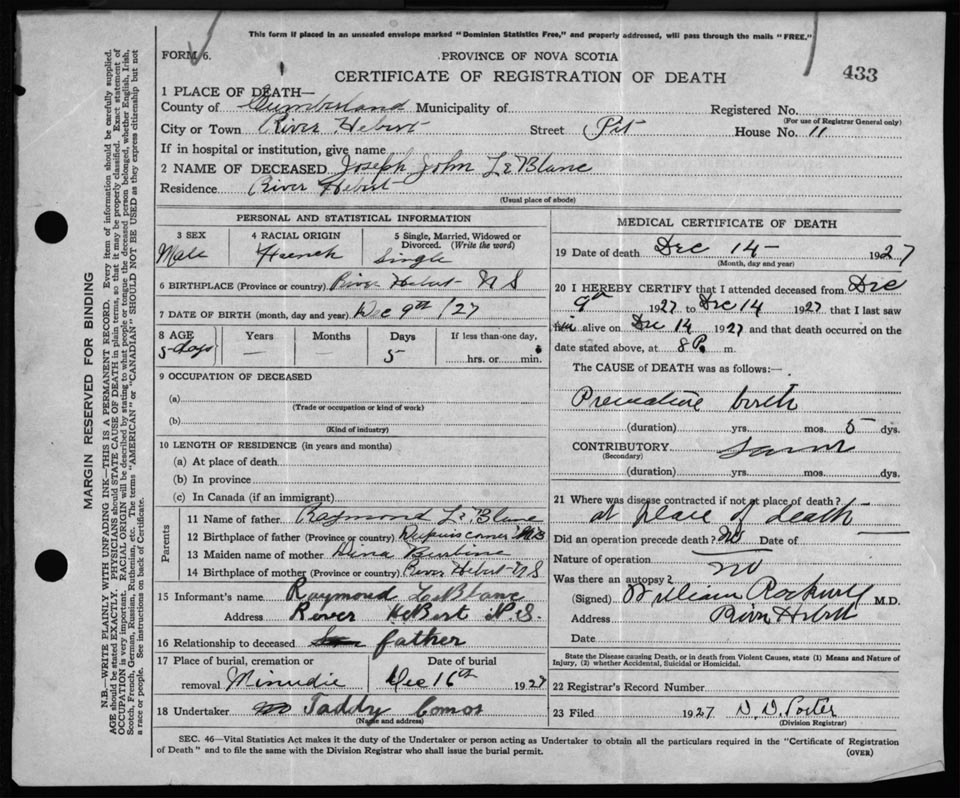 This form if placed in an unsealed envelope marked "Dominion Statistics Free," and properly addressed, will pass through the mails "FREE."
FORM 6.
PROVINCE OF NOVA SCOTIA
CERTIFICATE OF REGISTRATION OF DEATH
433
1 PLACE OF DEATH—
County of Cumberland Municipality of
Registered No.
(For use of Registrar General only)
City or Town River Hebert Street Pit House No. 11
If in hospital or institution, give name
2 NAME OF DECEASED Joseph John LeBlanc
Residence River Hebert
(Usual place of abode)
PERSONAL AND STATISTICAL INFORMATION
3 SEX
Male
4 RACIAL ORIGIN
French
5 Single, Married, Widowed or Divorced. (Write the word)
Single
6 BIRTHPLACE (Province or country) River Hebert N S
7 DATE OF BIRTH (month, day and year) Dec 9th /27
8 AGE Years Months Days If less than one day,
5 days — — 5 hrs. or min.
9 OCCUPATION OF DECEASED
(a)
(Trade or occupation or kind of work)
(b)
(Kind of industry)
10 LENGTH OF RESIDENCE (in years and months)
(a) At place of death
(b) In province
(c) In Canada (if an immigrant)
Parents
11 Name of father Raymond LeBlanc
12 Birthplace of father (Province or country) Dupuis corner N B
13 Maiden name of mother Dina
14 Birthplace of mother (Province or country) River Hebert N S
15 Informant's name Raymond LeBlanc
Address River HeBert N.S.
16 Relationship to deceased father
17 Place of burial, cremation or removal Minudie
Date of burial Dec 16th 1927
18 Undertaker Taddy
(Name and address)
MEDICAL CERTIFICATE OF DEATH
19 Date of death Dec 14 — 1927
(Month, day and year)
20 I HEREBY CERTIFY that I attended deceased from Dec
9th 1927 to Dec 14 1927 that I last saw
him alive on Dec 14 1927 and that death occurred on
date stated above, at 8 P. m.
The CAUSE of DEATH was as follows:—
Premature birth
(duration) yrs. mos. 5 dys.
CONTRIBUTORY Same
(Secondary)
(duration) yrs. mos. dys.
21 Where was disease contracted if not at place of death?
at place of death
Did an operation precede death? No Date of
Nature of operation
Was there an autopsy? no
(Signed) William Rockwell M.D.
Address River Hebert
Date
State the Disease causing Death, or in death from Violent Causes, state (1) Means and Nature of
Injury, (2) whether Accidental, Suicidal or Homicidal.
22 Registrar's Record Number
23 Filed 1927 D. D. Porter
(Division Registrar)
SEC. 46—Vital Statistics Act makes it the duty of the Undertaker or person acting as Undertaker to obtain all the particulars required in the "Certificate of Registration
of Death" and to file the same with the Division Registrar who shall issue the burial permit.
(OVER)
MARGIN RESERVED FOR BINDING
N.B.—WRITE PLAINLY WITH UNFADING INK—THIS IS A PERMANENT RECORD. Every item of information should be carefully supplied.
AGE should be stated EXACTLY. PHYSICIANS should STATE CAUSE OF DEATH in plain terms, so that it may be properly classified. Exact statement of
OCCUPATION is very important. RACIAL ORIGIN will be described by stating to what people or tongue the deceased person belonged, whether English, Irish,
Scotch, French, German, Russian, Ruthenian, etc. The terms "AMERICAN" or "CANADIAN" SHOULD NOT BE USED as they express citizenship but not
a race or people. See instructions on back of Certificate.